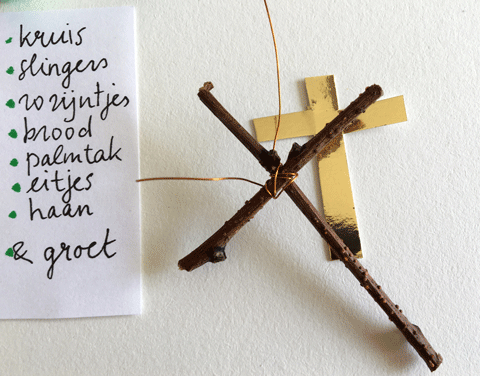 kruis
slingers
rozijntjes
brood
palmtak
eitjes
haan
& groet